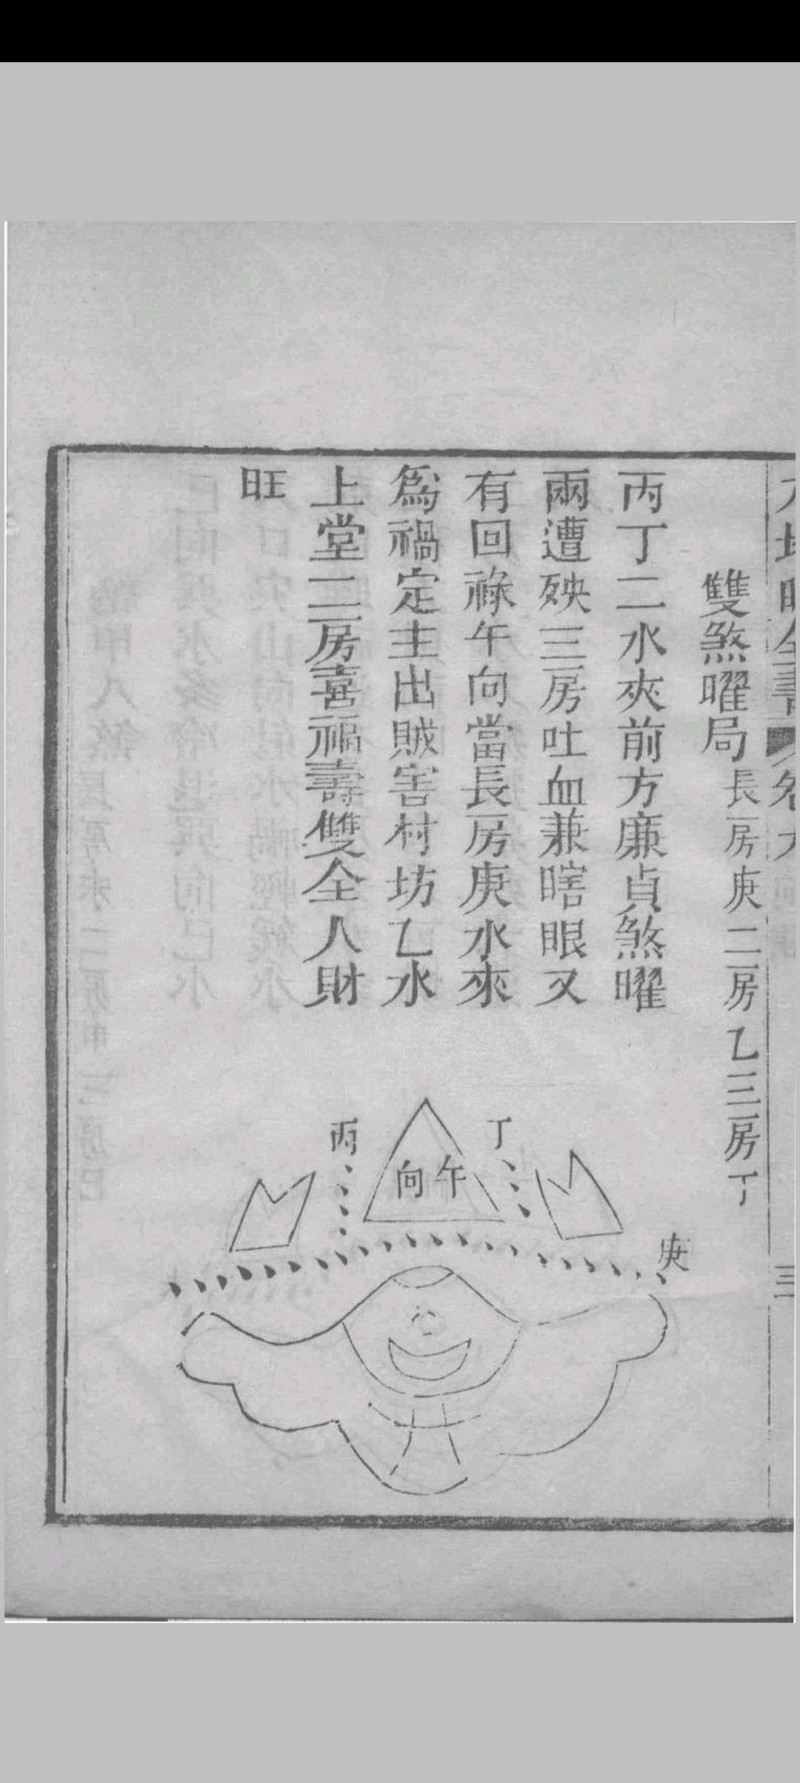 雙煞曜局 長房庚二房乙三房丁
丙丁二水夾前方廉貞煞曜
兩遭殃三房吐血兼瞎眼又
有回祿午向當長房庚水來
為禍定主出賊害村坊乙水
上堂二房喜福壽雙全人財
旺
丙
丁
午向
庚
三